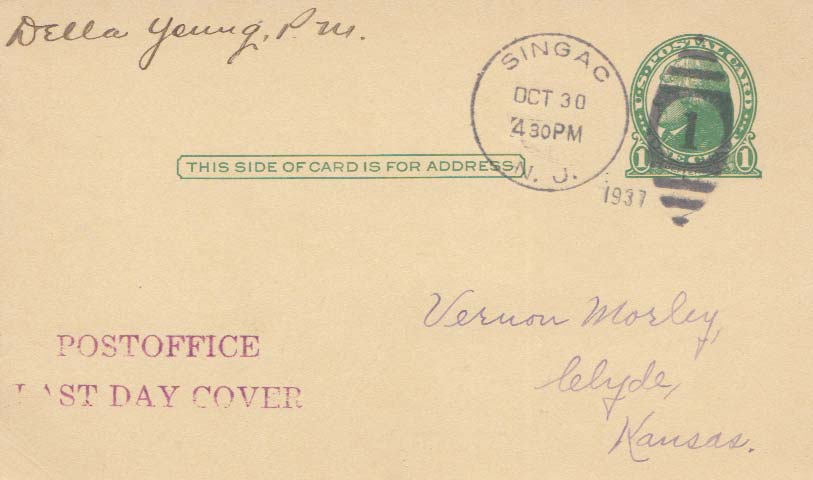 Della Young, P.M.
SINGAC
OCT 30
4 30PM
N. J.
1937
U.S. POSTAL CARD
1
1 CENT 1
THIS SIDE OF CARD IS FOR ADDRESS
POSTOFFICE
LAST DAY COVER
Vernon Morley,
Clyde,
Kansas.